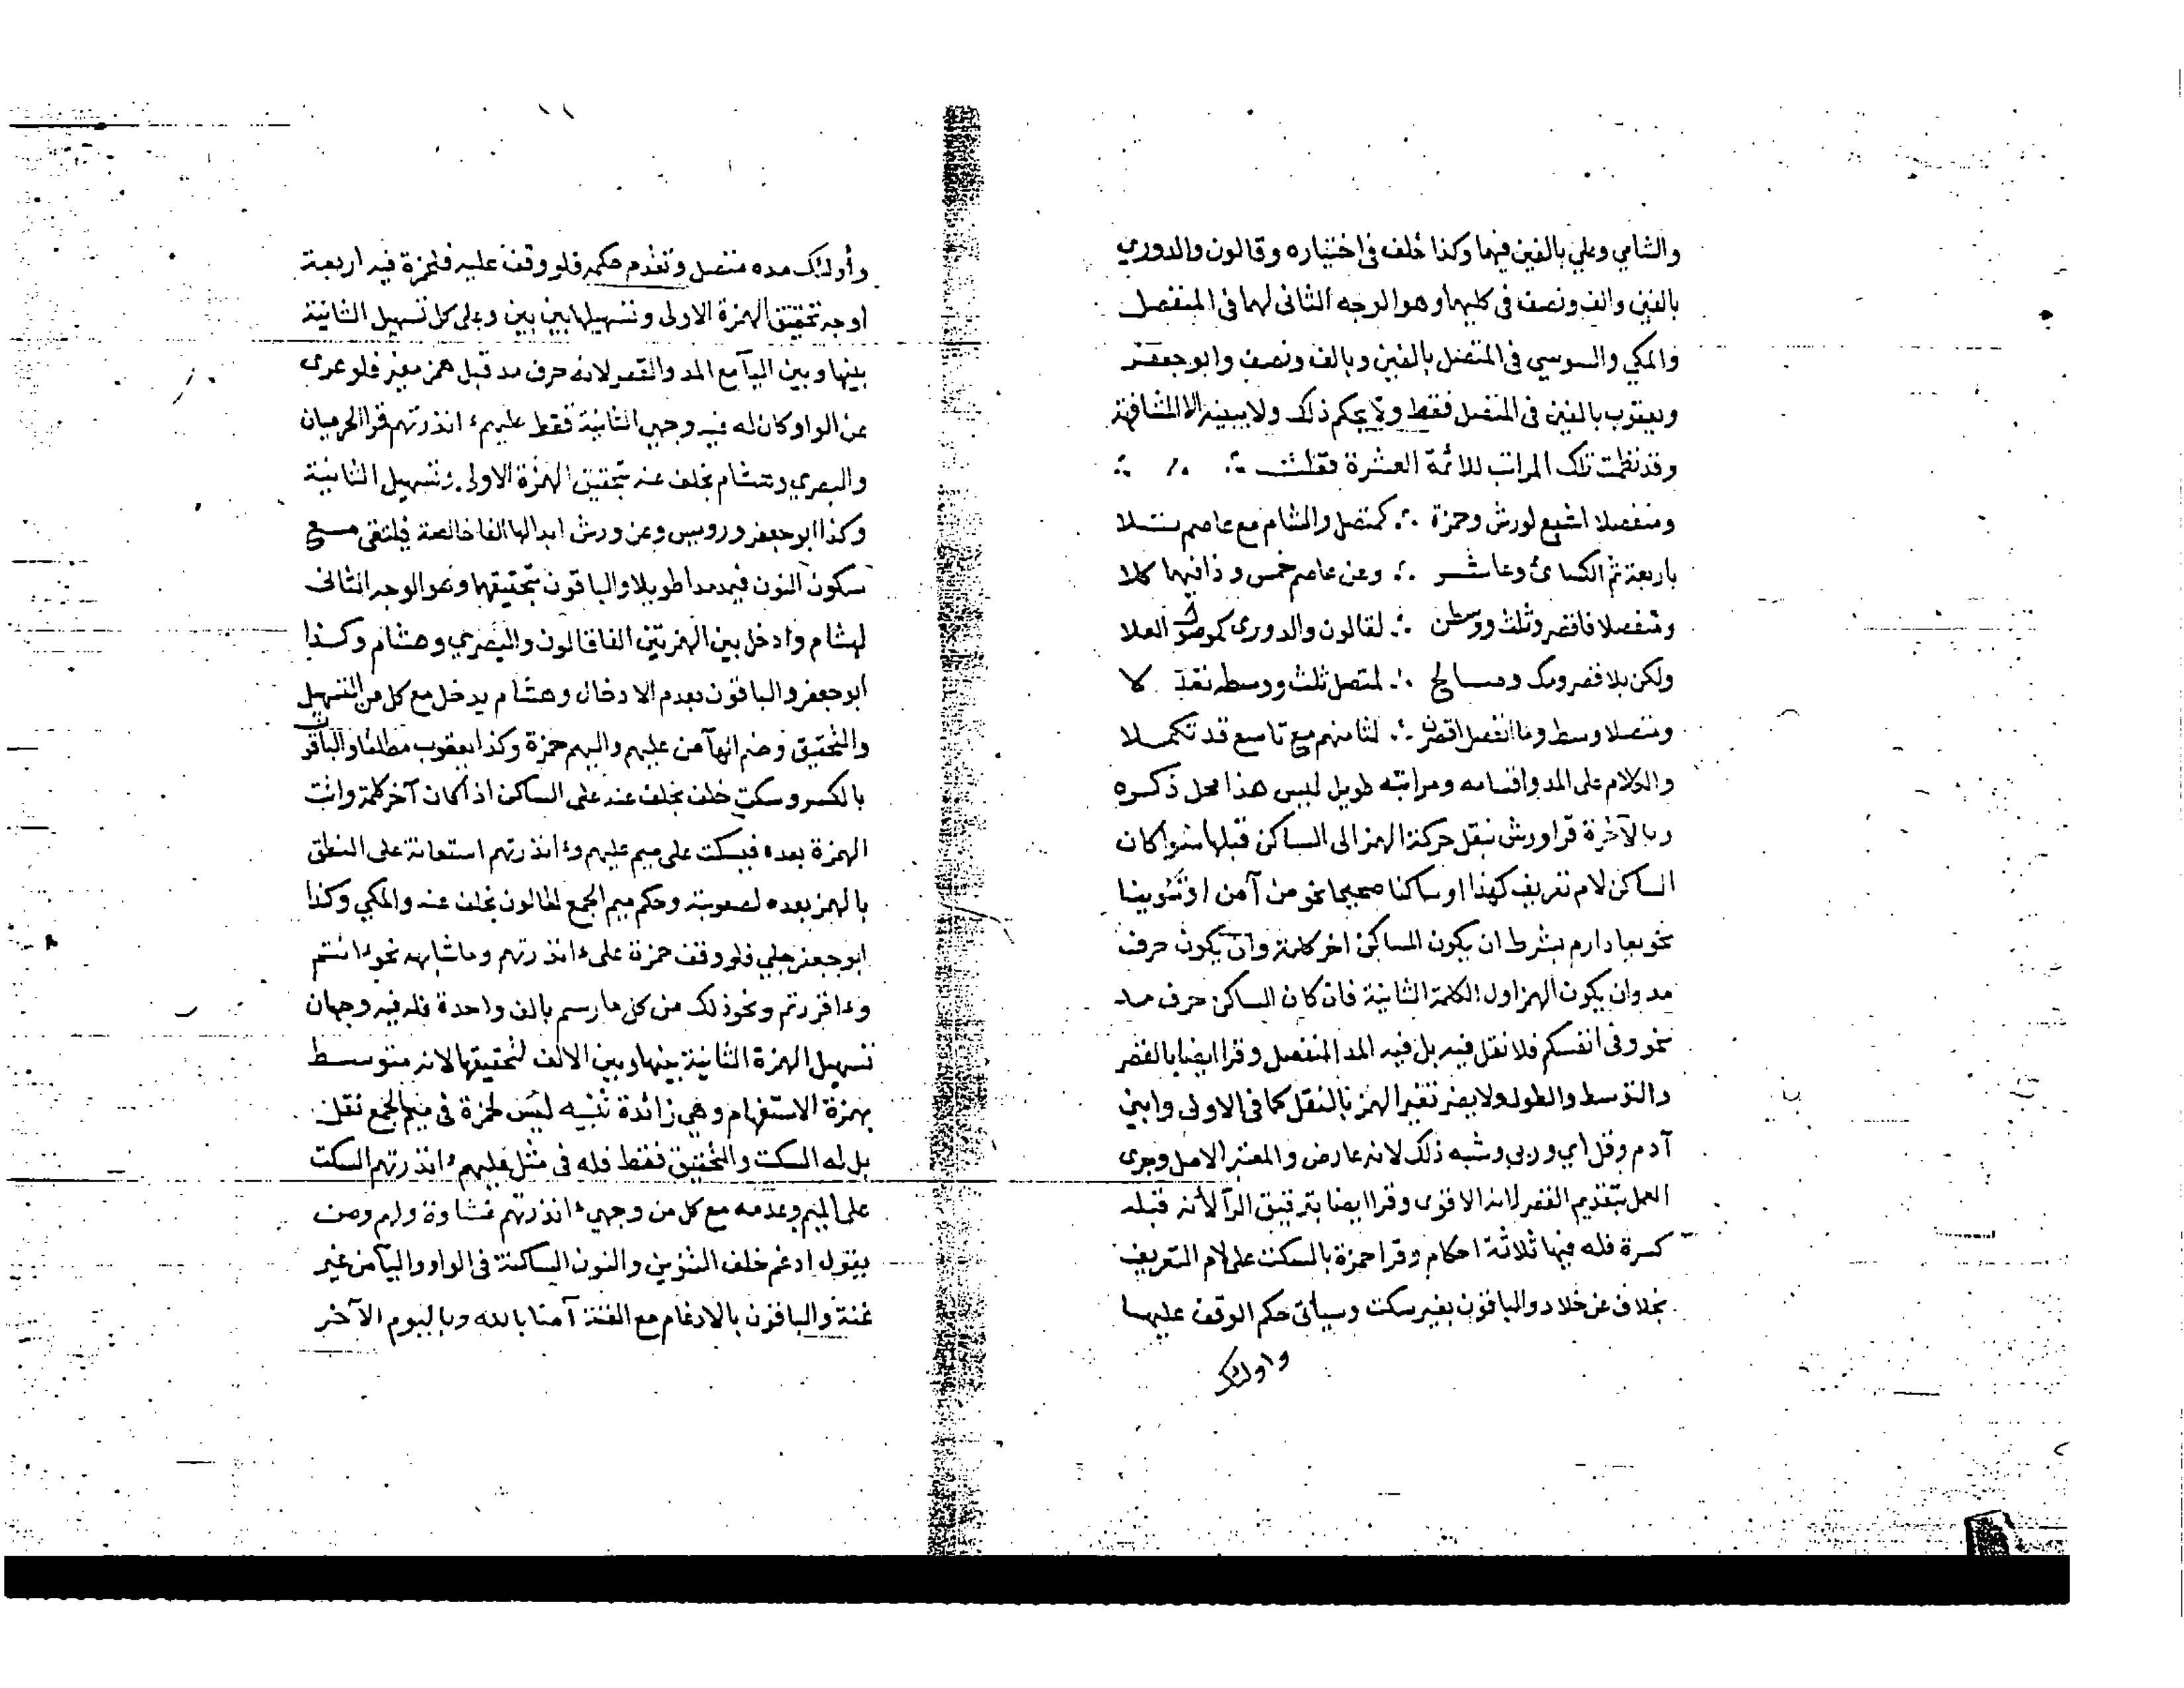 والشامي وعلي بالفين فيهما وكذا خلف في اختياره وقالون والدوري
بالفين والف ونصف في كليهما وهو الوجه الثاني لهما في المنفصل
والمكي والسوسي في المتصل بالفين وبالف ونصف وابو جعفر
ويعقوب بالفين في المتصل فقط ولا يحكم ذلك ولا يبينه الا المشافهة
وقد نظمت تلك المراتب للائمة العشرة فقلت
ومنفصلا اشبع لورش وحمزة ∴ كمتصل والشام مع عاصم تلا
باربعة ثم الكسائي وعاشر ∴ وعن عاصم خمس وذا فيهما كلا
ومنفصلا فاقصر وثلث ووسطن ∴ لقالون والدوري كموصول العلا
ولكن بلا قصر ومك وصالح ∴ لمتصل ثلث ووسطه نقلا
ومتصلا وسط وما انفصل اقصرن ∴ لثامنهم مع تاسع قد تكملا
والكلام على المد واقسامه ومراتبه طويل ليس هذا محل ذكره
وبالآخرة قرا ورش بنقل حركة الهمز الى الساكن قبلها سوا كان
الساكن لام تعريف كهذا او ساكنا صحيحا نحو من آمن او تنوينا
نحو بعاد ارم بشرط ان يكون الساكن اخر كلمة وان يكون حرف
مد وان يكون الهمز اول الكلمة الثانية فان كان الساكن حرف مد
نحو وفي انفسكم فلا نقل فيه بل فيه المد المنفصل وقرا ايضا بالقصر
والتوسط والطول ولا يضر تغير الهمز بالنقل كما في الاولى وابني
آدم وقل اي وربي وشبه ذلك لانه عارض والمعتبر الاصل وجرى
العمل بتقديم القصر لانه الاقوى وقرا ايضا بترقيق الرآ لأنه قبله
كسرة فله فيها ثلاثة احكام وقرا حمزة بالسكت على لام التعريف
بخلاف عن خلاد والباقون بغير سكت وسياتي حكم الوقف عليها
واولئك
وأولئك مده متصل وتقدم حكمه فلو وقف عليه فلحمزة فيه اربعة
اوجه تحقيق الهمزة الاولى وتسهيلها بين بين وعلى كل تسهيل الثانية
بينها وبين اليآ مع المد والقصر لانه حرف مد قبل همز مغير فلو عرى
عن الواو كان له فيه وجهي الثانية فقط عليهم ءانذرتهم قرا الحرميان
والبصري وهشام بخلف عنه بتحقيق الهمزة الاولى وتسهيل الثانية
وكذا ابو جعفر ورويس وعن ورش ابدالها الفا خالصة فيلتقي مع
سكون النون فيمد مدا طويلا والباقون بتحقيقها وهو الوجه الثاني
لهشام وادخل بين الهمزتين الفا قالون والبصري وهشام وكذا
ابو جعفر والباقون بعدم الادخال وهشام يدخل مع كل من التسهيل
والتحقيق وضم الهآ من عليهم واليهم حمزة وكذا يعقوب مطلقا والباقون
بالكسر وسكت خلف بخلف عنه على الساكن اذا كان آخر كلمة واتت
الهمزة بعده فيسكت على ميم عليهم وءانذرتهم استعانة على النطق
بالهمز بعده لصعوبته وحكم ميم الجمع لقالون بخلف عنه والمكي وكذا
ابو جعفر جلي فلو وقف حمزة على ءانذرتهم وما شابهه نحو ءانتم
وءاقررتم ونحو ذلك من كل ما رسم بالف واحدة فله فيه وجهان
تسهيل الهمزة الثانية بينها وبين الالف لتحقيقها لانه متوسط
بهمزة الاستفهام وهي زائدة تنبيه ليس لحمزة في ميم الجمع نقل
بل له السكت والتحقيق فقط فله في مثل عليهم ءانذرتهم السكت
على الميم وعدمه مع كل من وجهي ءانذرتهم غشاوة ولهم ومن
يقول ادغم خلف التنوين والنون الساكنة في الواو واليآ من غير
غنة والباقون بالادغام مع الغنة آمنا بالله وباليوم الآخر